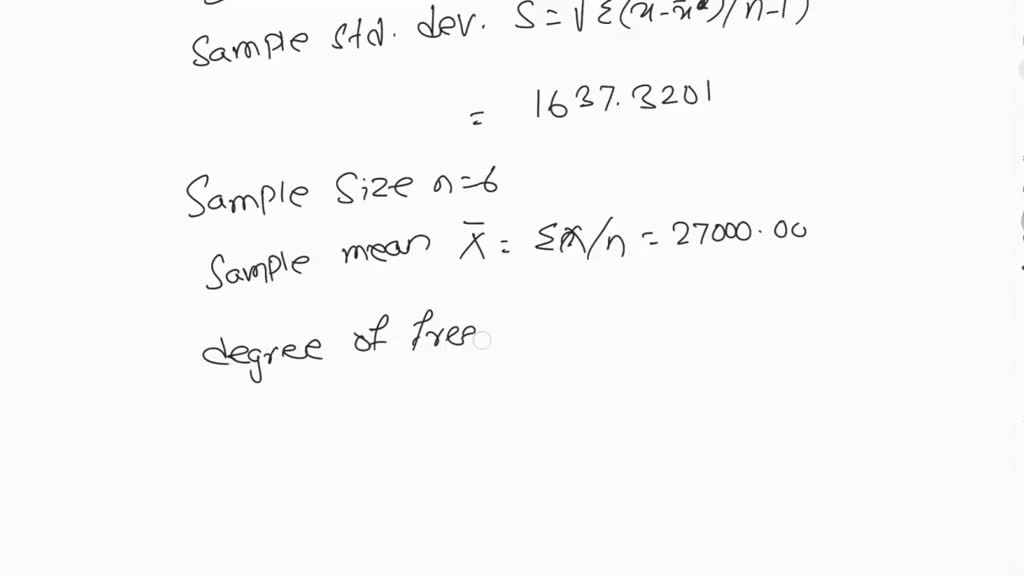 Sample std. dev. S = √Σ(x-x̄²)/n-1)
= 1637.3201
Sample Size n=6
Sample mean X̄ = ΣX/n = 27000.00
degree of free